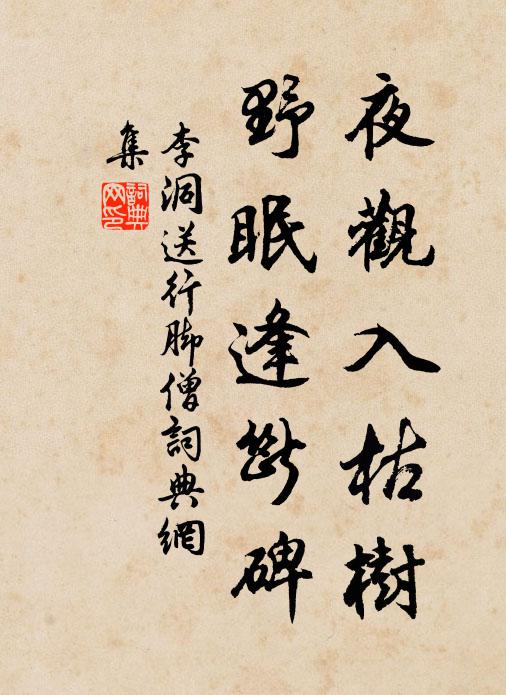 夜觀入枯樹
野眠逢斷碑
李洞送行脚僧詞典網
集
詞典
网印